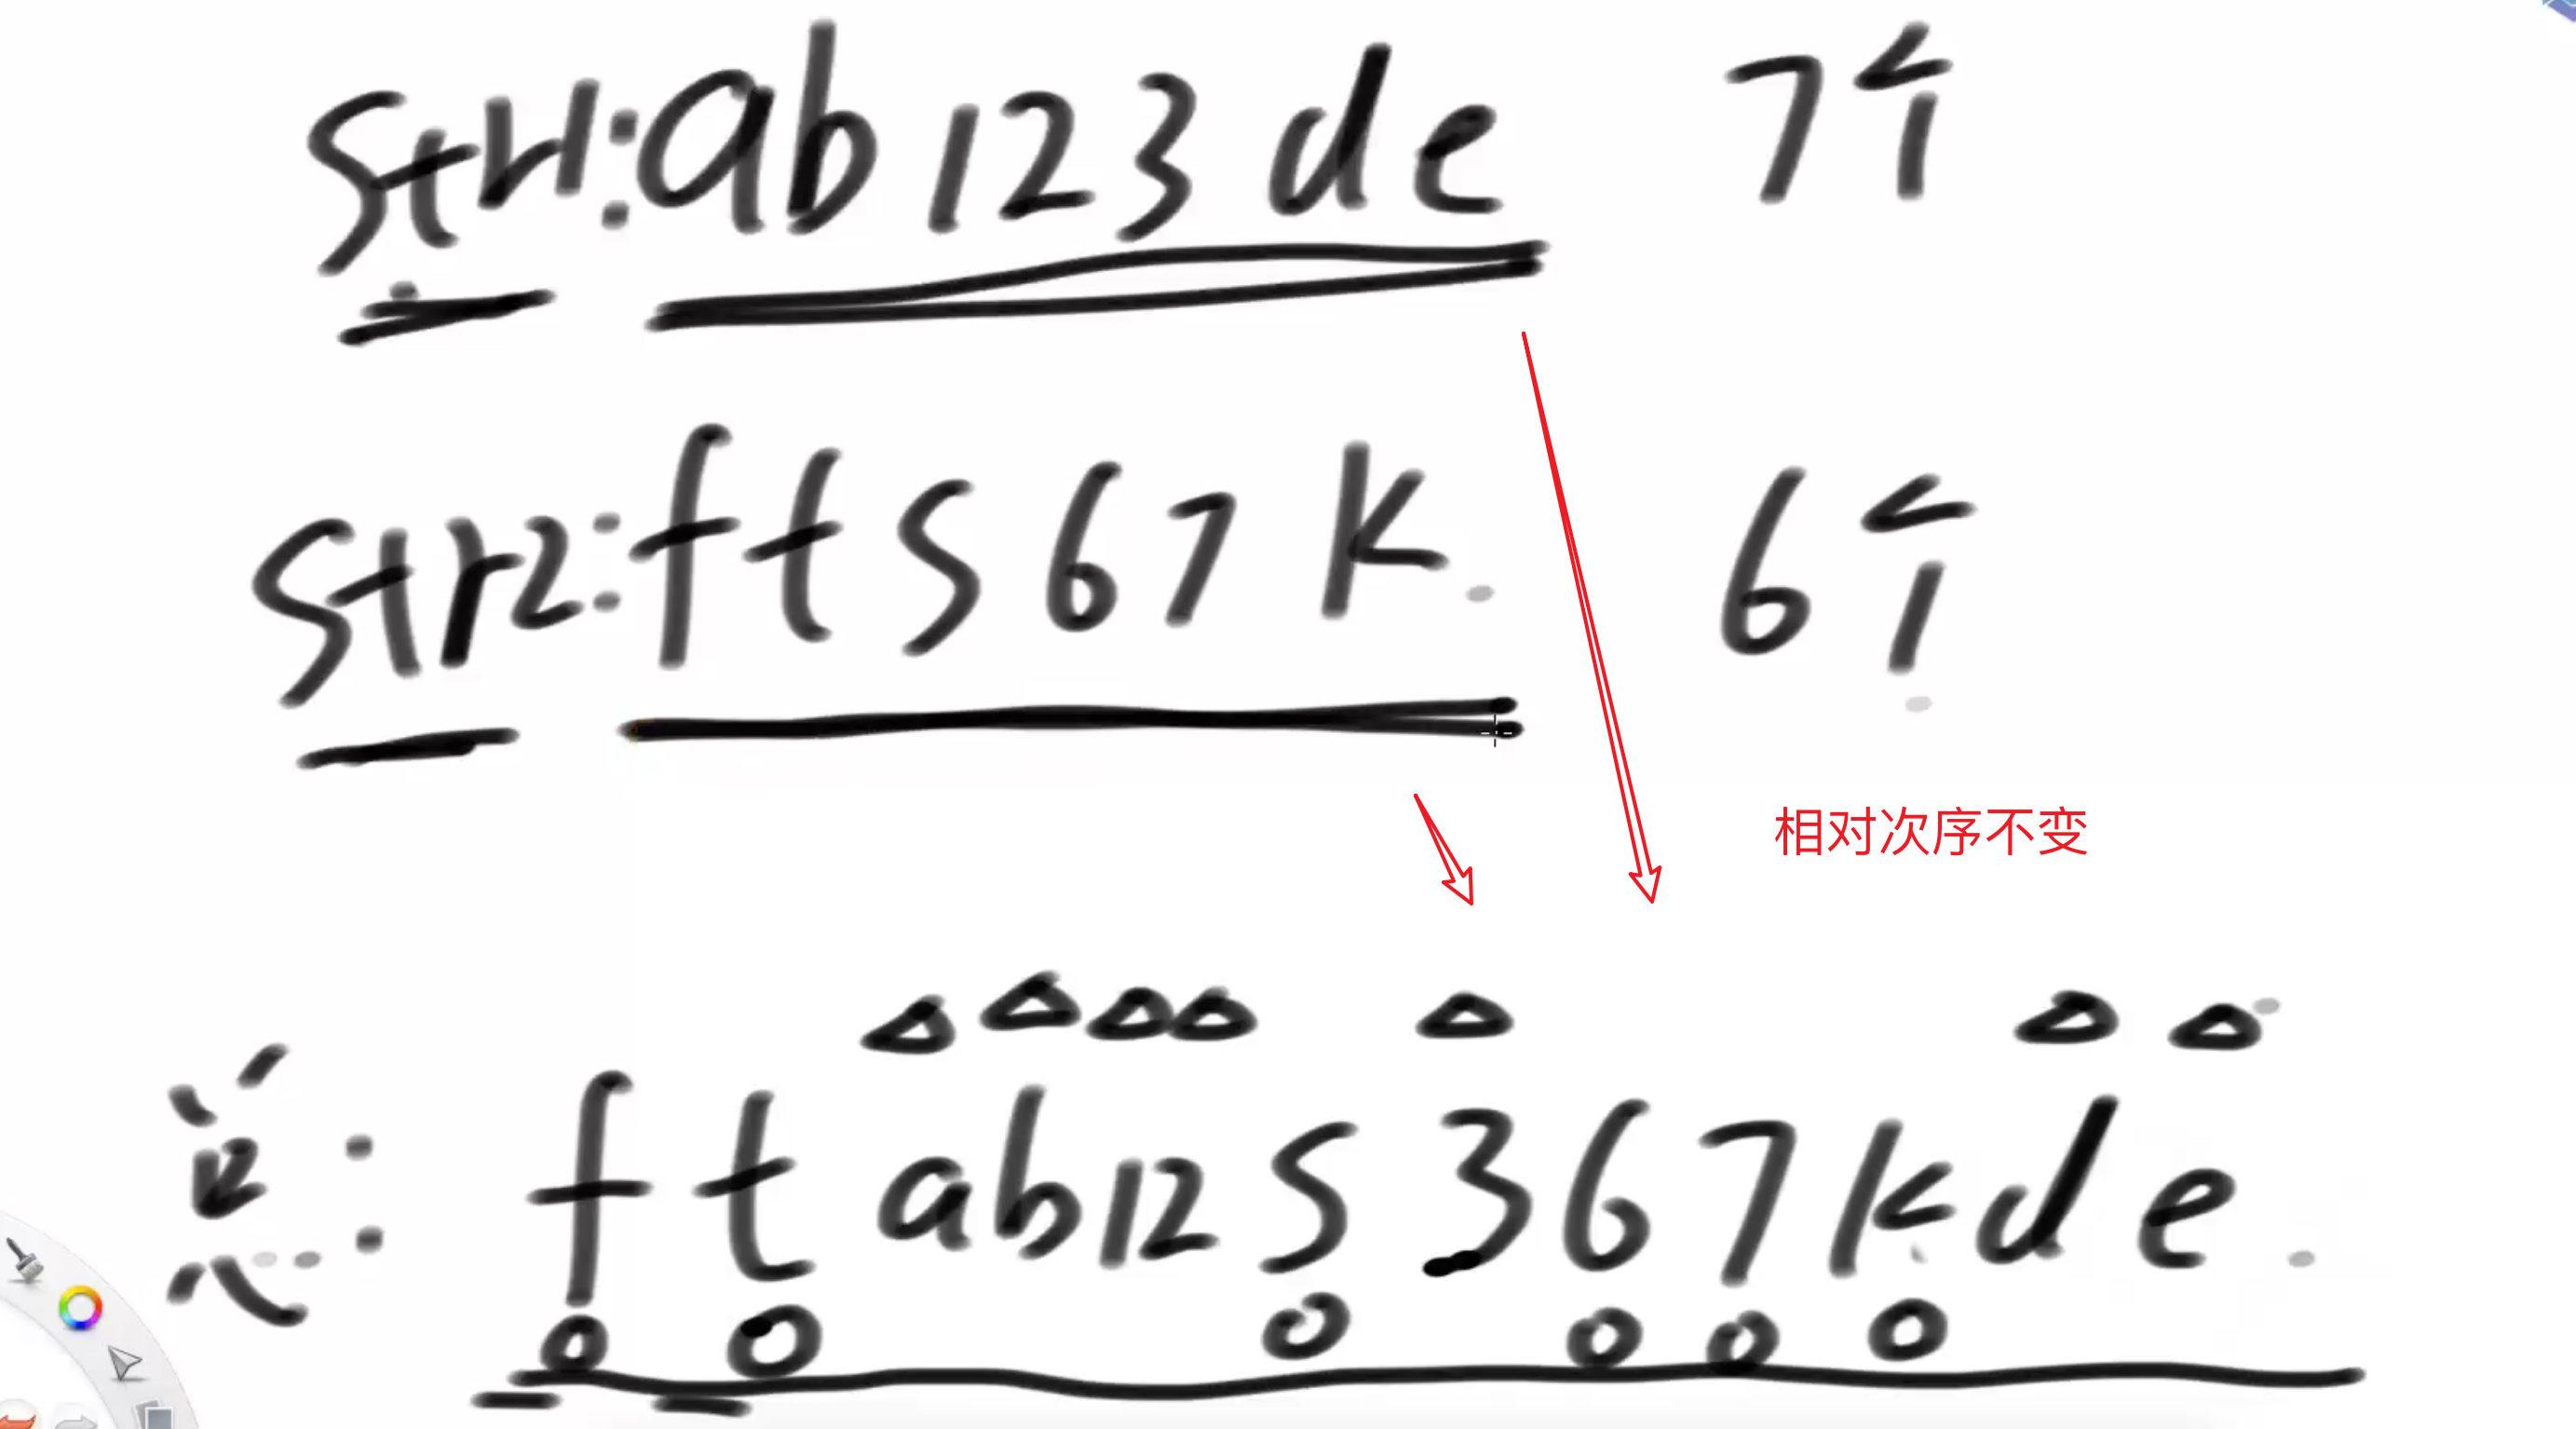 str1:ab123de 7个
str2:ft567k. 6个
相对次序不变
总: ftab125367kde.